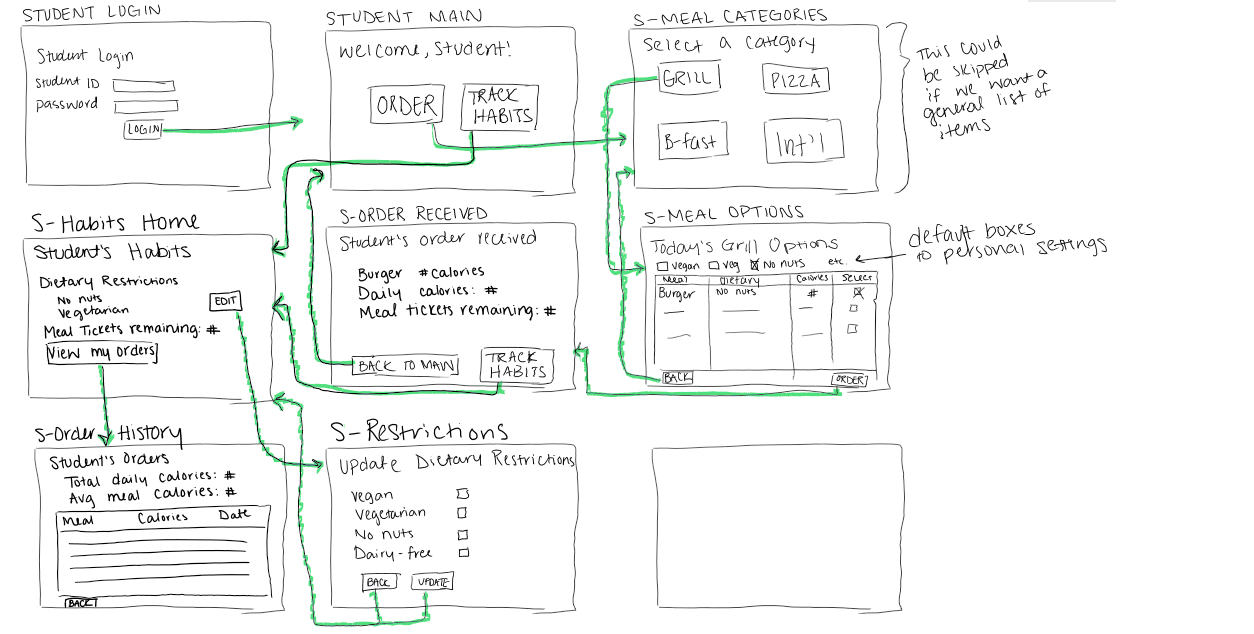 STUDENT LOGIN
Student Login
Student ID
password
LOGIN
STUDENT MAIN
Welcome, Student!
ORDER
TRACK
HABITS
S-MEAL CATEGORIES
Select a Category
GRILL
PIZZA
B-fast
Int'l
This could
be skipped
if we want a
general list of
items
S-Habits Home
Student's Habits
Dietary Restrictions
No nuts
Vegetarian
EDIT
Meal Tickets remaining: #
View my orders
S-ORDER RECEIVED
Student's order received
Burger #calories
Daily calories: #
Meal tickets remaining: #
BACK TO MAIN
TRACK
HABITS
S-MEAL OPTIONS
Today's Grill Options
vegan veg No nuts etc.
Meal Dietary Calories Select
Burger No nuts #
BACK
ORDER
default boxes
to personal settings
S-Order History
Student's Orders
Total daily calories: #
Avg meal calories: #
Meal Calories Date
BACK
S-Restrictions
Update Dietary Restrictions
vegan
Vegetarian
No nuts
Dairy-free
BACK
UPDATE